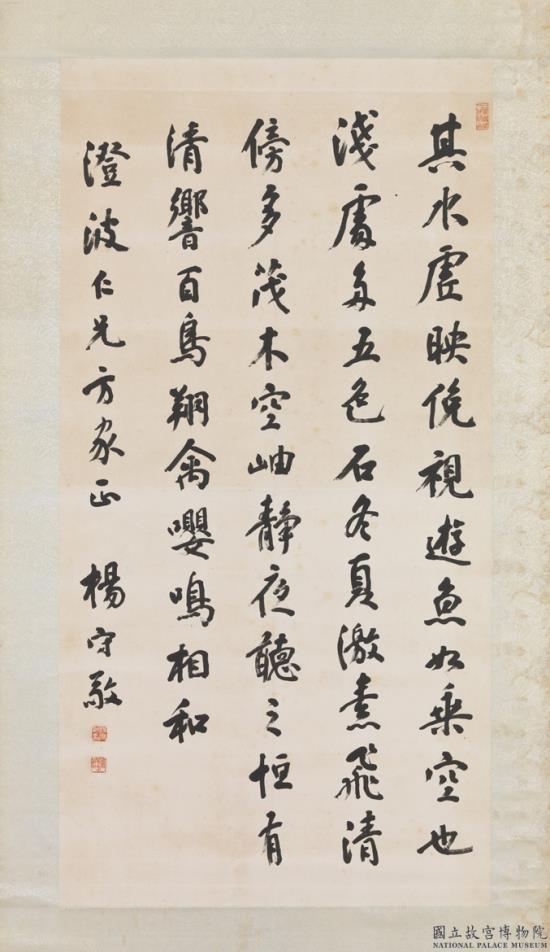 其水虛映俛視遊魚如乘空也
淺處多五色石冬夏激素飛清
傍多茂木空岫靜夜聽之恒有
清響百鳥翔禽嚶鳴相和
澄波仁兄方家正 楊守敬
國立故宮博物院
NATIONAL PALACE MUSEUM